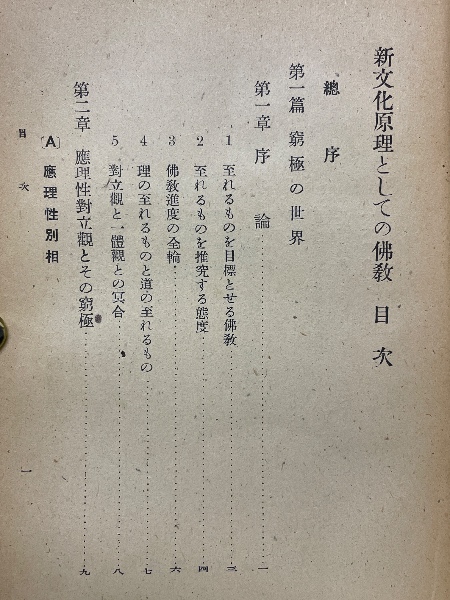 新文化原理としての佛敎 目次
總序
第一篇 窮極の世界
第一章 序論……一
1 至れるものを目標とせる佛敎……三
2 至れるものを推究する態度……四
3 佛敎進度の全輪……六
4 理の至れるものと道の至れるもの……七
5 對立觀と一體觀との冥合……八
第二章 應理性對立觀とその窮極……九
〔A〕應理性別相
目次
一